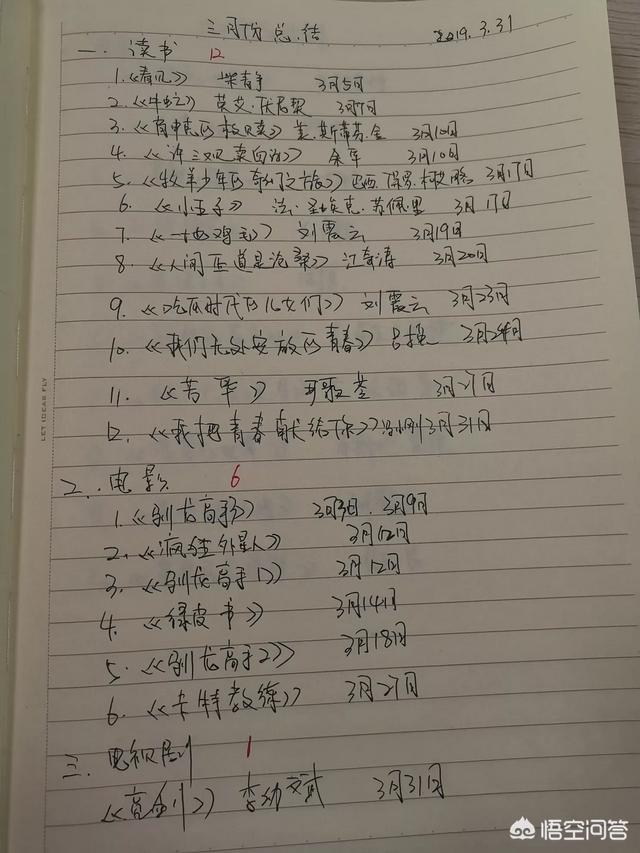 三月份总结 2019.3.31
一、读书 12
1.《春风》 柴静 3月5日
2.《牛虻》 英 艾·伏尼契 3月7日
3.《肖申克的救赎》美.斯蒂芬.金 3月10日
4.《许三观卖血记》 余华 3月10日
5.《牧羊少年的奇幻之旅》巴西.保罗.柯艾略 3月17日
6.《小王子》 法.圣埃克.苏佩里 3月17日
7.《一地鸡毛》 刘震云 3月19日
8.《人间正道是沧桑》江奇涛 3月20日
9.《吃瓜时代的儿女们》刘震云 3月23日
10.《我们无处安放的青春》吕挽 3月24日
11.《菩萨》 3月27日
12.《我把青春献给你》冯小刚 3月31日
二、电影 6
1.《驯龙高手3》 3月3日.3月9日
2.《疯狂外星人》 3月12日
3.《驯龙高手1》 3月12日
4.《绿皮书》 3月14日
5.《驯龙高手2》 3月18日
6.《卡特教练》 3月27日
三、电视剧 1
《亮剑2》 李幼斌 3月31日
LET IDEAS FLY
悟空问答